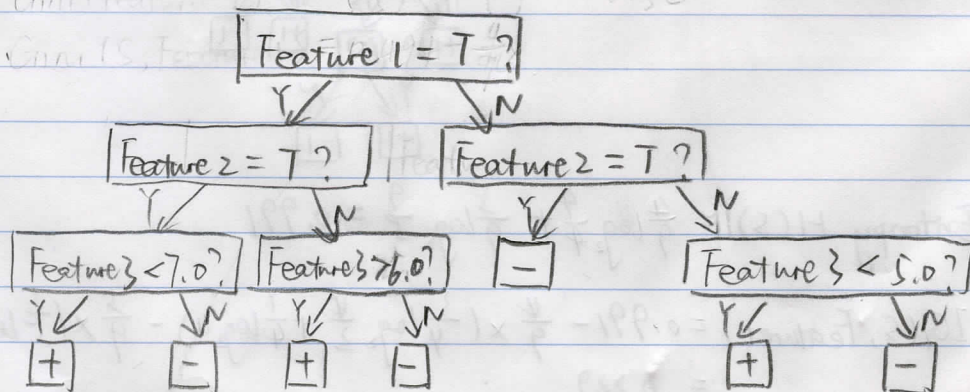 Feature 1 = T ?
Y N
Feature 2 = T ? Feature 2 = T ?
Y N Y N
Feature 3 < 7.0? Feature 3 > 6.0? - Feature 3 < 5.0?
Y N Y N Y N
+ - + - + -